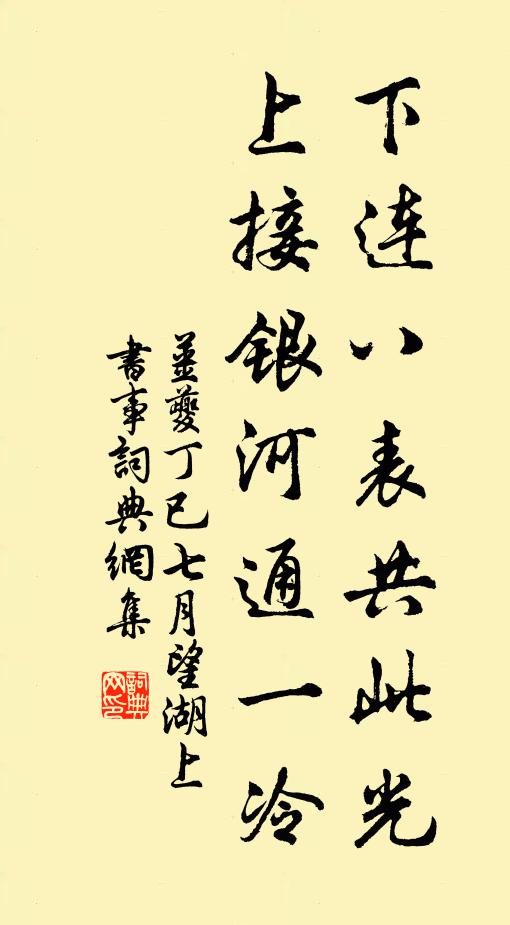 下連八表共此光
上接銀河通一冷
姜夔丁巳七月望湖上
書事詞典網集
詞典
网印